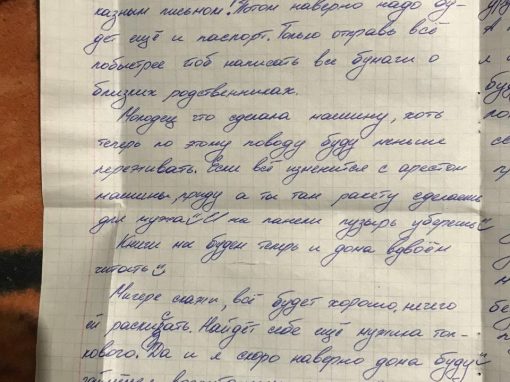 казным письмом. Потом наверно надо бу-
дет ещё и паспорт. Только отправь всё
побыстрее чтоб написать все бумаги о
близких родственниках.
Молодец что сделала машину, хоть
теперь по этому поводу буду меньше
переживать. Если всё изменится с арестом
машины, приду а ты там ракету сделаешь
для мужа на панели пузырь уберешь
Книги мы будем теперь и дома вдвоём
читать
скажи, всё будет хорошо, нечего
ей раскисать. Найдёт себе ещё мужика тол-
кового. Да и я скоро наверно дома буду